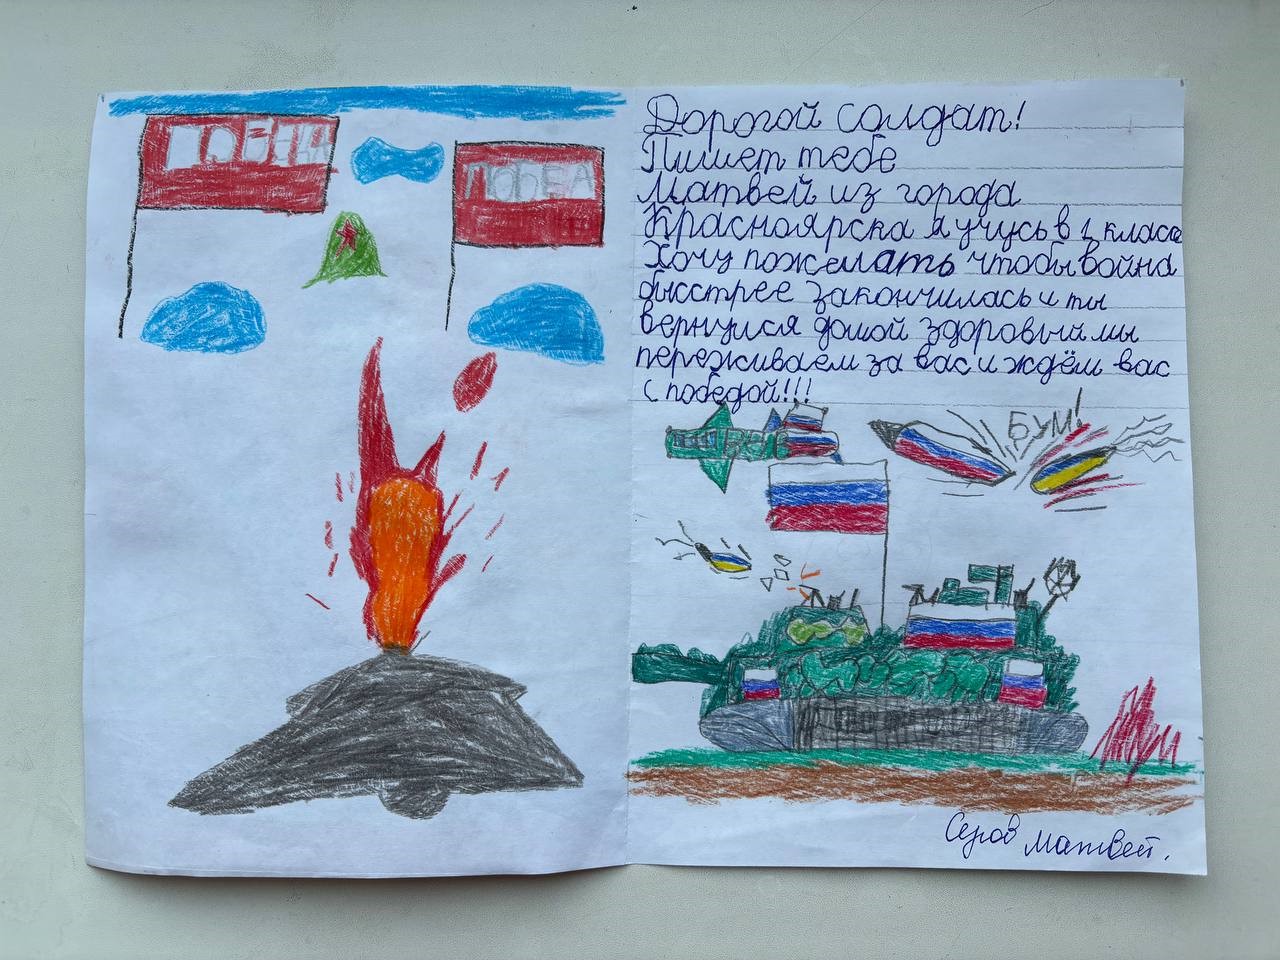 ПОБЕДА
ПОБЕДА
Дорогой солдат!
Пишет тебе
Матвей из города
Красноярска я учусь в 1 класе
Хочу пожелать чтобы война
быстрее закончилась и ты
вернулся домой здоровый мы
переживаем за вас и ждём вас
с победой!!!
БУМ!
Серов Матвей.